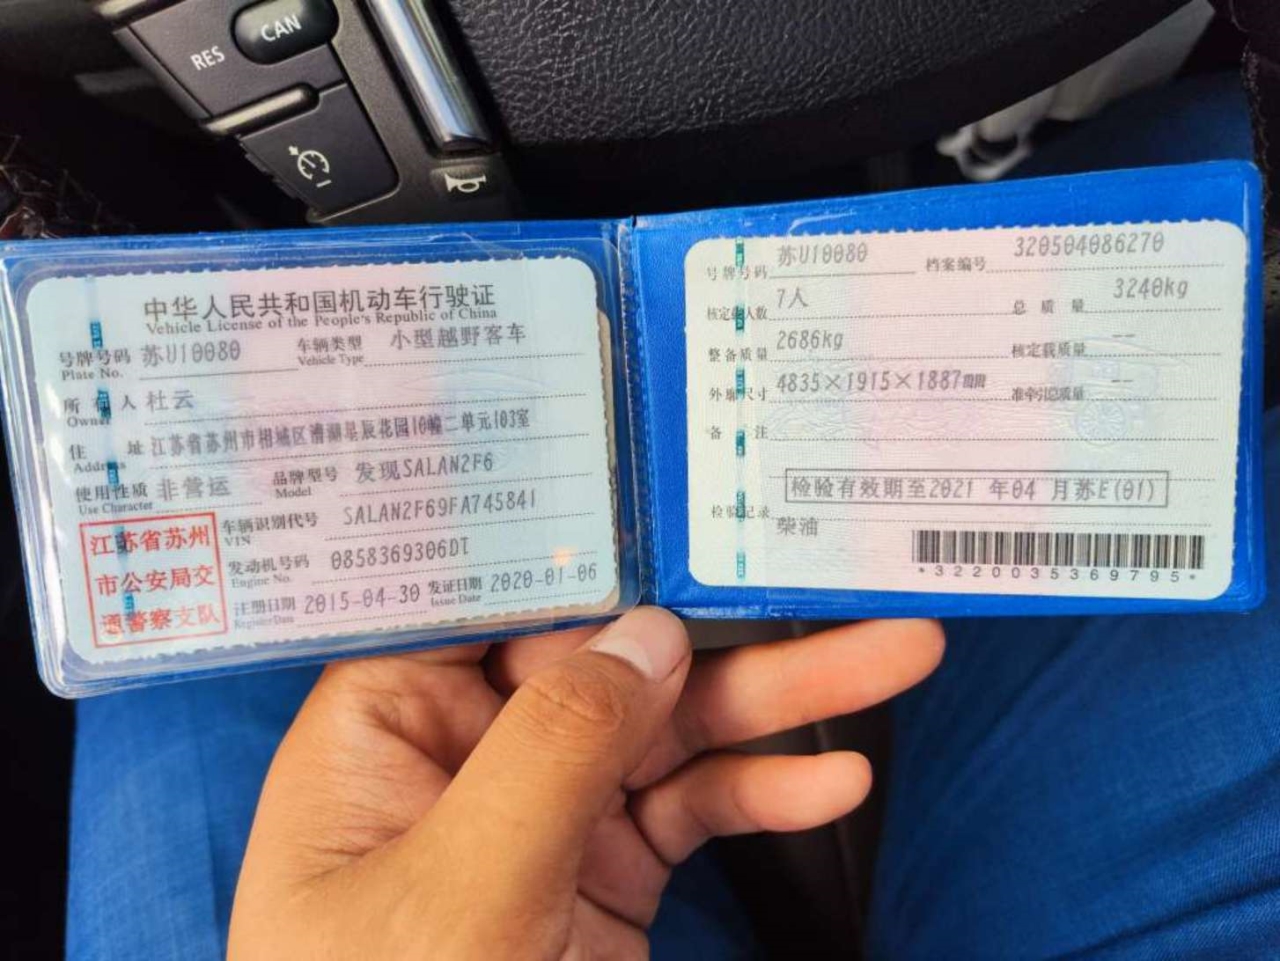 RES
CAN
中华人民共和国机动车行驶证
Vehicle License of the People's Republic of China
号牌号码 苏U10080 车辆类型 小型越野客车
Plate No. Vehicle Type
所有人 杜云
Owner
住 址 江苏省苏州市相城区漕湖星辰花园10幢二单元103室
Address
使用性质 非营运 品牌型号 发现SALAN2F6
Use Character Model
车辆识别代号 SALAN2F69FA745841
VIN
发动机号码 0858369306DT
Engine No.
注册日期 2015-04-30 发证日期 2020-01-06
Register Date Issue Date
江苏省苏州
市公安局交
通警察支队
号牌号码 苏U10080 档案编号 320504086270
核定载人数 7人 总质量 3240kg
整备质量 2686kg 核定载质量 --
外廓尺寸 4835×1915×1887mm 准牵引总质量 --
备 注
检验有效期至2021 年04 月苏E(01)
检验记录
柴油
*3220035369795*